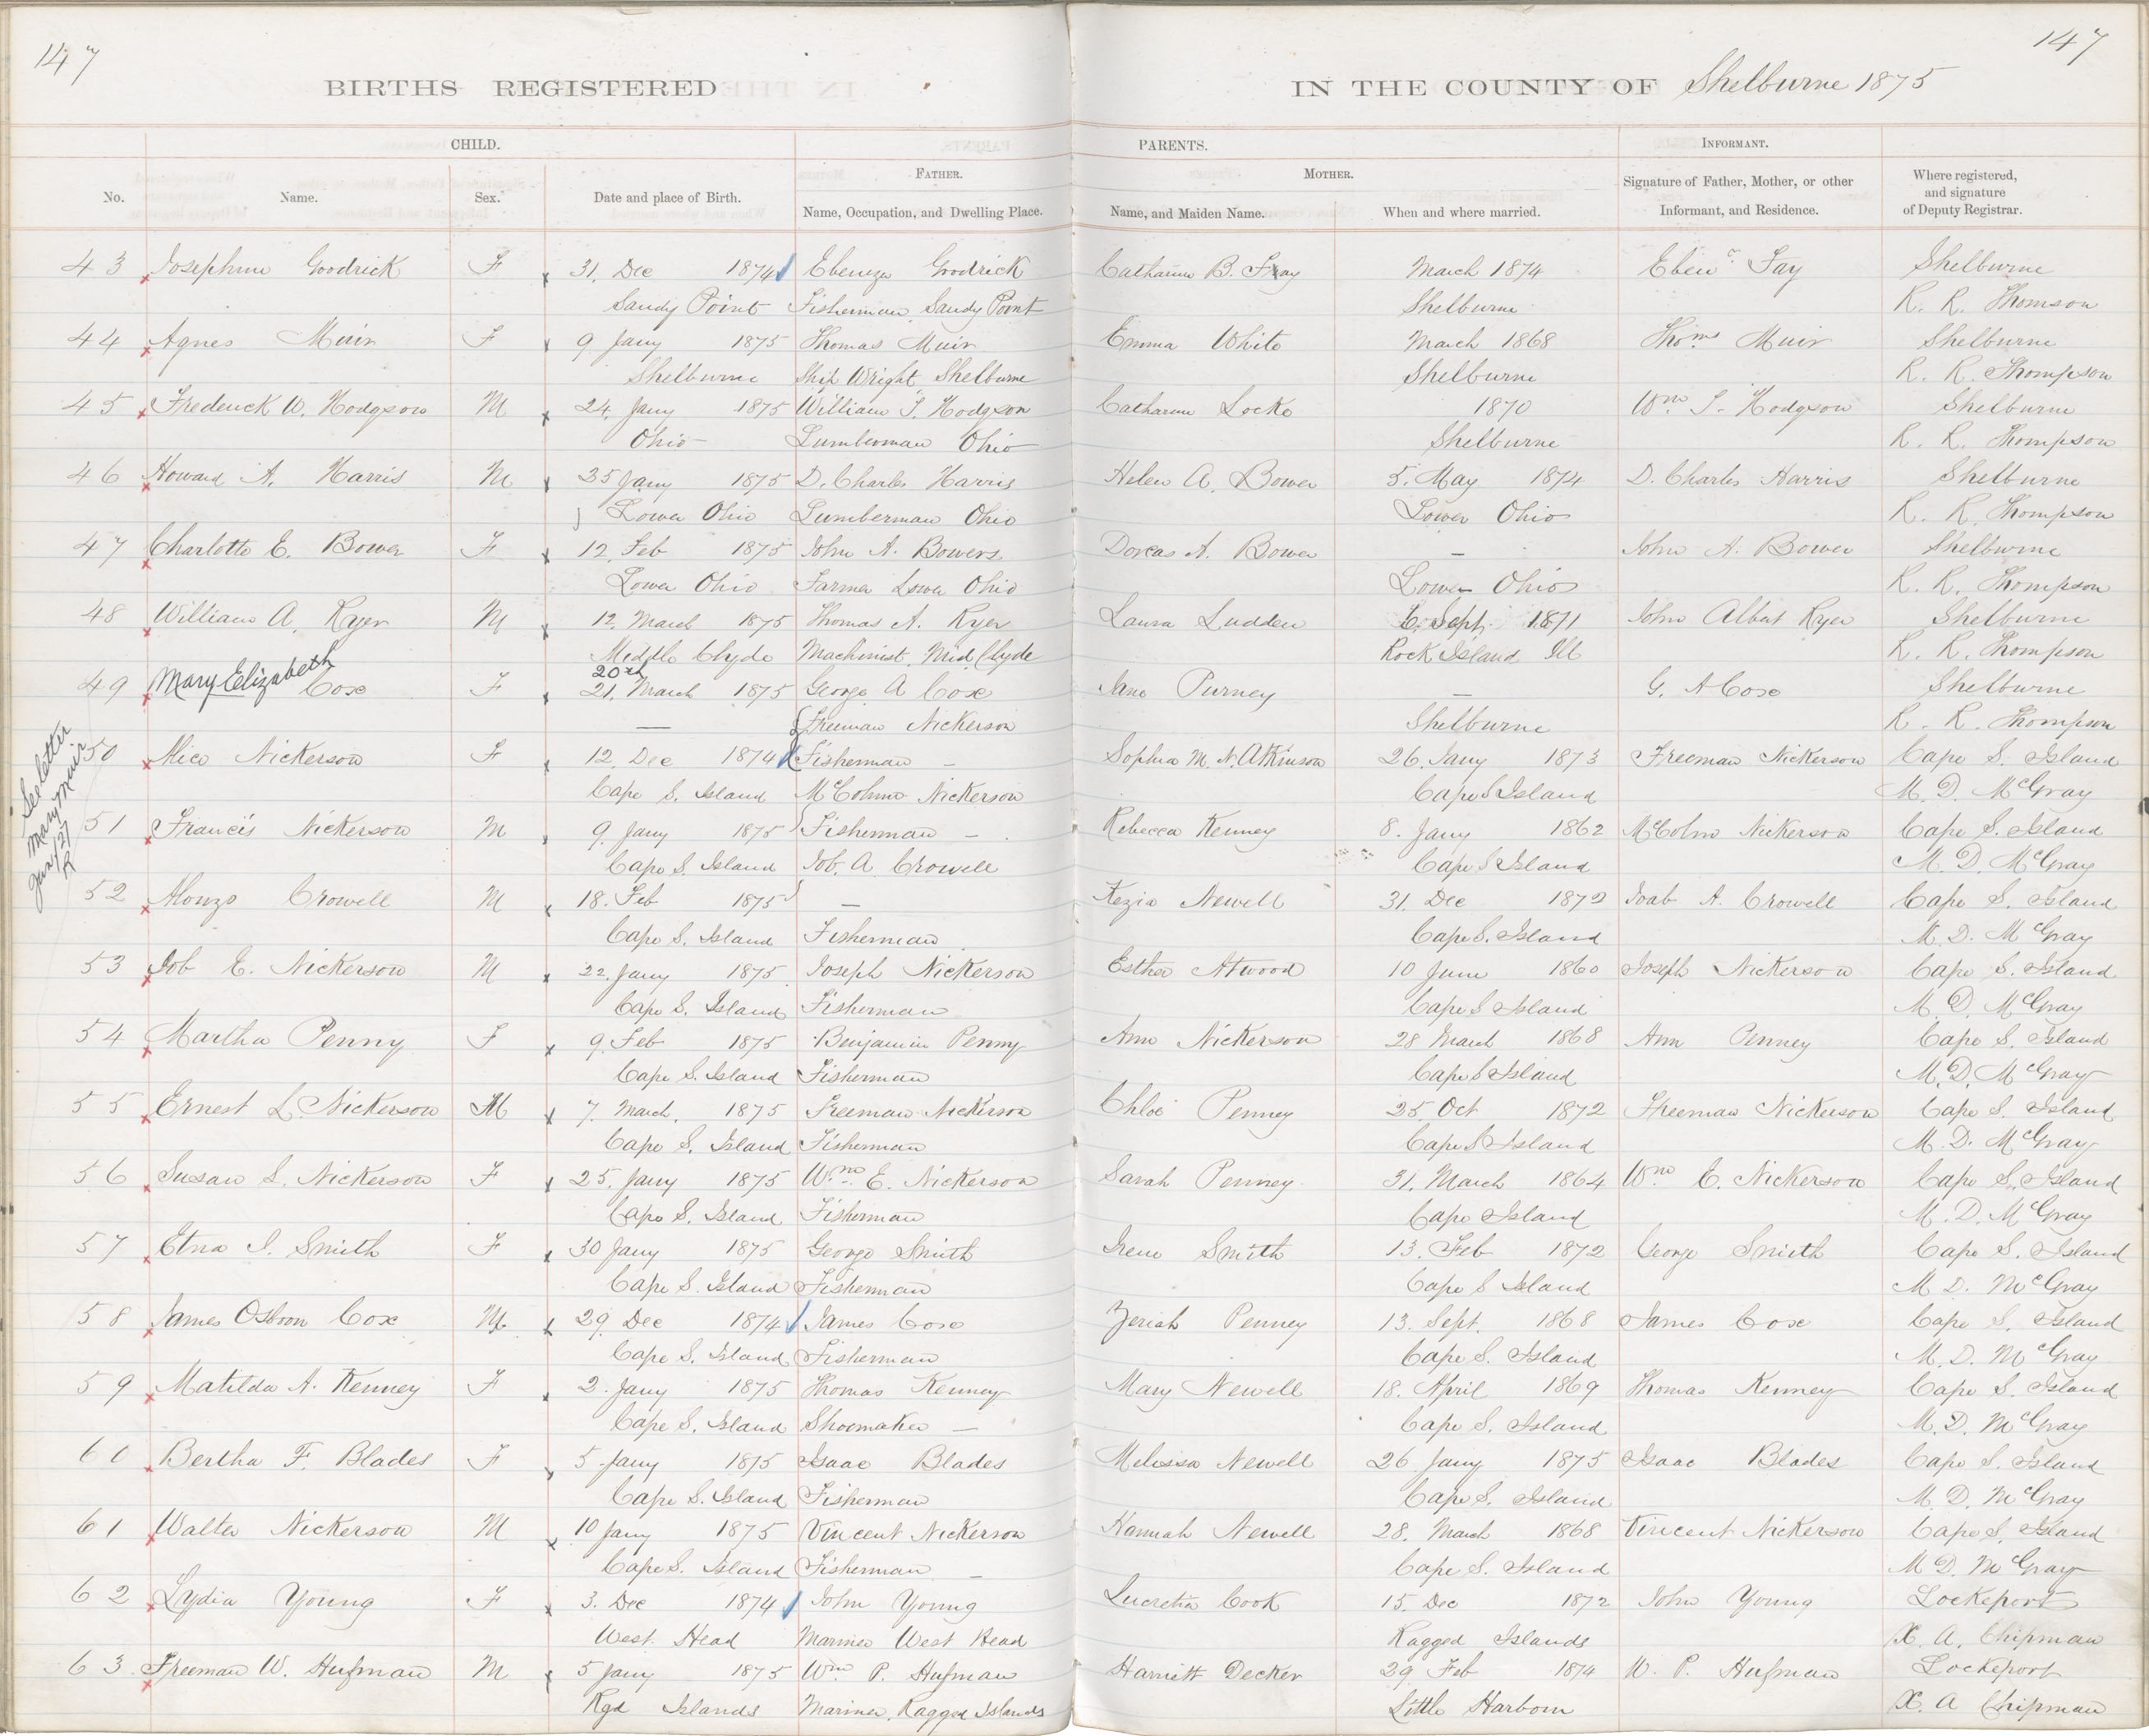 147
147
BIRTHS REGISTERED IN THE COUNTY OF Shelburne 1875
CHILD. PARENTS. INFORMANT.
FATHER. MOTHER.
No. Name. Sex. Date and place of Birth. Name, Occupation, and Dwelling Place. Name, and Maiden Name. When and where married. Signature of Father, Mother, or other Informant, and Residence. Where registered, and signature of Deputy Registrar.
43 Josephine Goodrick F 31. Dec 1874 Ebenezer Goodrick Catharine B. Fay March 1874 Ebenr Fay Shelburne
Sandy Point Fisherman, Sandy Point Shelburne R. R. Thomson
44 Agnes Muir F 9 Jany 1875 Thomas Muir Emma White March 1868 Thoms Muir Shelburne
Shelburne Ship Wright, Shelburne Shelburne R. R. Thompson
45 Frederick W. Hodgson M 24. Jany 1875 William T. Hodgson Catharine Locke 1870 Wm T. Hodgson Shelburne
Ohio Lumberman Ohio Shelburne R. R. Thompson
46 Howard A. Harris M 25 Jany 1875 D. Charles Harris Helen A. Bower 5. May 1874 D. Charles Harris Shelburne
Lower Ohio Lumberman Ohio Lower Ohio R. R. Thompson
47 Charlotte E. Bower F 12. Feb 1875 John A. Bowers Dorcas A. Bower — John A. Bower Shelburne
Lower Ohio Farmer Lower Ohio Lower Ohio R. R. Thompson
48 William A. Ryer M 12. March 1875 Thomas A. Ryer Laura Ludden 6. Sept. 1871 John Albert Ryer Shelburne
Middle Clyde Machinist Mid Clyde Rock Island Ill R. R. Thompson
20th
49 Mary Elizabeth Cox F 21. March 1875 George A Cox Jane Purney — G. A Cox Shelburne
— Freeman Nickerson Shelburne R. R. Thompson
50 Alice Nickerson F 12. Dec 1874 Fisherman — Sophia M. N. Atkinson 26. Jany 1873 Freeman Nickerson Cape S. Island
Cape S. Island McColmo Nickerson Cape S Island M. D. McGray
See letter
Mary Muir
Jan/27
R
51 Francis Nickerson M 9. Jany 1875 Fisherman — Rebecca Kenney 8. Jany 1862 McColm Nickerson Cape S. Island
Cape S. Island Job. A Crowell Cape S Island M. D. McGray
52 Alonzo Crowell M 18. Feb 1875 — Kezia Newell 31. Dec 1872 Joab A. Crowell Cape S. Island
Cape S. Island Fisherman Cape S. Island M. D. McGray
53 Job E. Nickerson M 22. Jany 1875 Joseph Nickerson Esther Atwood 10 June 1860 Joseph Nickerson Cape S. Island
Cape S. Island Fisherman Cape S Island M. D. McGray
54 Martha Penny F 9. Feb 1875 Benjamin Penny Ann Nickerson 28 March 1868 Ann Penney Cape S. Island
Cape S. Island Fisherman Cape S Island M. D. McGray
55 Ernest L. Nickerson M 7. March. 1875 Freeman Nickerson Chloe Penney 25 Oct 1872 Freeman Nickerson Cape S. Island
Cape S. Island Fisherman Cape S Island M. D. McGray
56 Susan S. Nickerson F 25. Jany 1875 Wm. E. Nickerson Sarah Penney 31. March 1864 Wm E. Nickerson Cape S. Island
Cape S. Island Fisherman Cape Island M. D. McGray
57 Etna I. Smith F 30 Jany 1875 George Smith Irene Smith 13. Feb 1872 George Smith Cape S. Island
Cape S. Island Fisherman Cape S Island M D. McGray
58 James Osborn Cox M 29. Dec 1874 James Cox Zeriah Penney 13. Sept. 1868 James Cox Cape S. Island
Cape S. Island Fisherman Cape S. Island M. D. McGray
59 Matilda A. Kenney F 2. Jany 1875 Thomas Kenney Mary Newell 18. April 1869 Thomas Kenney Cape S. Island
Cape S. Island Shoemaker — Cape S. Island M. D. McGray
60 Bertha F. Blades F 5 Jany 1875 Isaac Blades Melissa Newell 26 Jany 1875 Isaac Blades Cape S. Island
Cape S. Island Fisherman Cape S. Island M. D. McGray
61 Walter Nickerson M 10 Jany 1875 Vincent Nickerson Hannah Newell 28. March 1868 Vincent Nickerson Cape S. Island
Cape S. Island Fisherman — Cape S. Island M D. McGray
62 Lydia Young F 3. Dec 1874 John Young Lucretia Cook 15. Dec 1872 John Young Lockeport
West Head Mariner West Head Ragged Islands A. Chipman
63. Freeman W. Hufman M 5 Jany 1875 Wm P. Hufman Harriett Decker 29 Feb 1874 W. P. Hufman Lockeport
Rgd Islands Mariner, Ragged Islands Little Harbour A Chipman